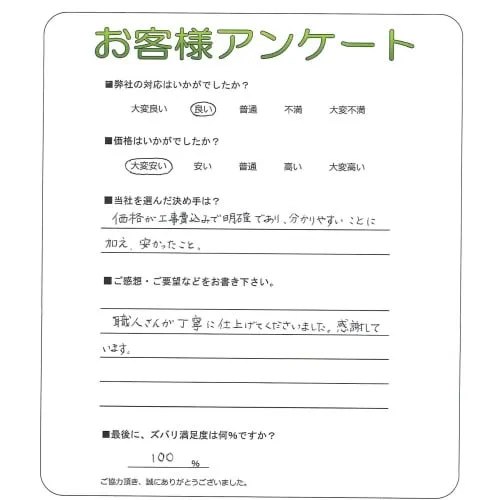 お客様アンケート
■弊社の対応はいかがでしたか？
大変良い 良い 普通 不満 大変不満
■価格はいかがでしたか？
大変安い 安い 普通 高い 大変高い
■当社を選んだ決め手は？
価格が工事費込みで明確であり、分かりやすいことに
加え、安かったこと。
■ご感想・ご要望などをお書き下さい。
職人さんが丁寧に仕上げてくださいました。感謝して
います。
■最後に、ズバリ満足度は何％ですか？
100 ％
ご協力頂き、誠にありがとうございました。